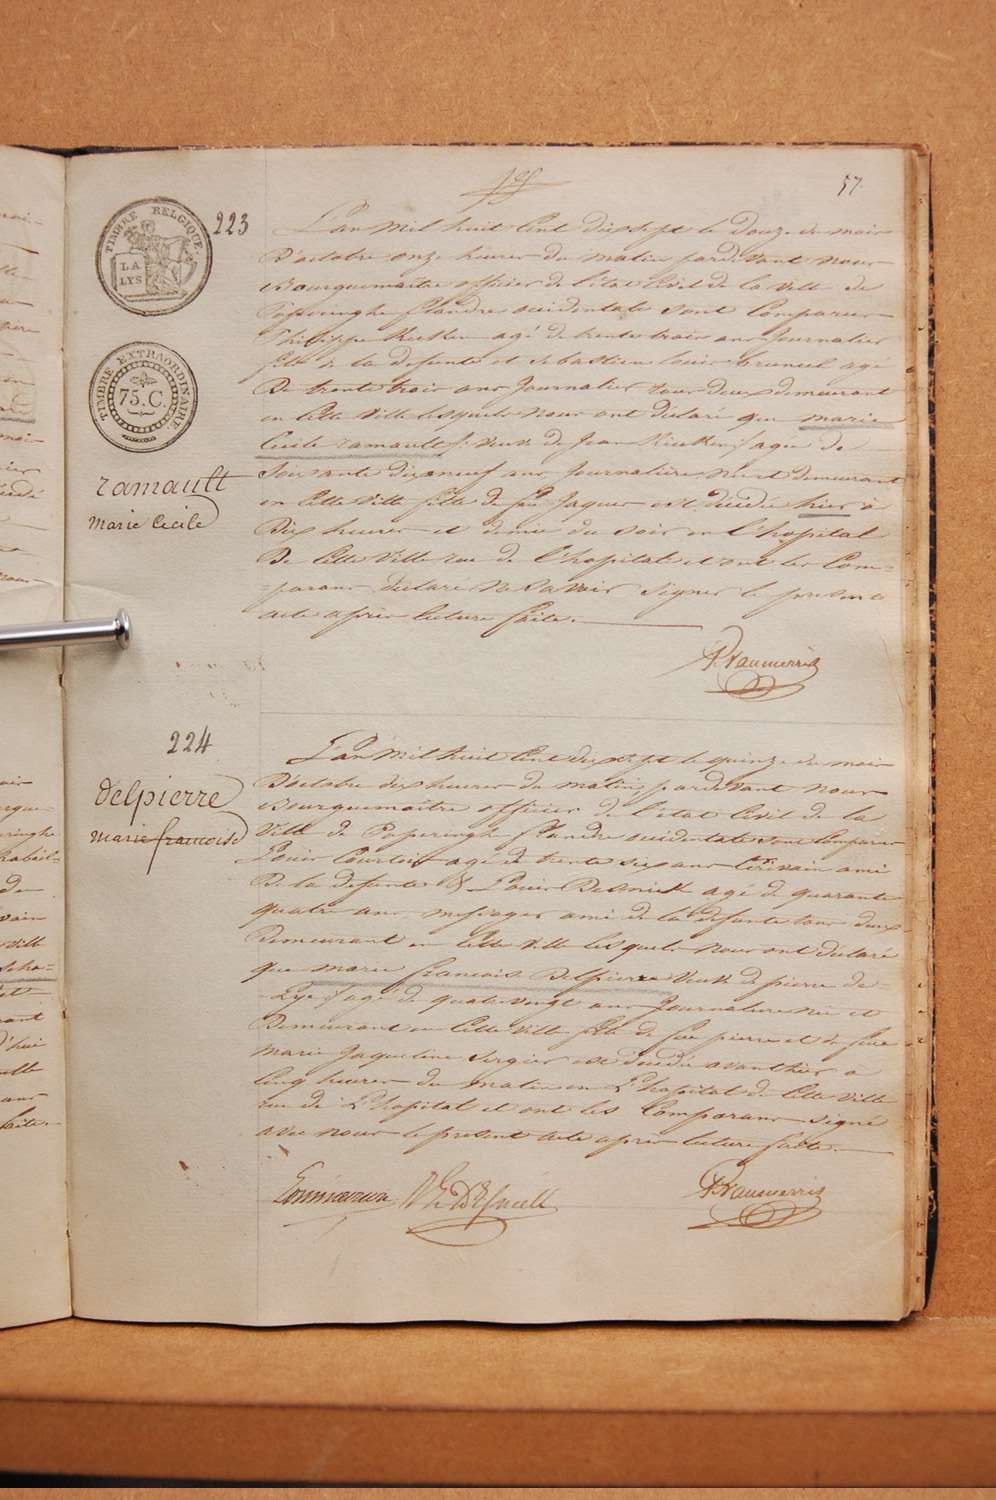 57.
TIMBRE BELGIQUE.
LA
LYS
223
L'an Mil huit Cent dix sept le Douze du mois
D'octobre onze heures du matin pardevant nous
Bourguemaitre officier de l'état Civil de la ville de
Poperinghe flandre occidentale sont Comparus
Philippe agé de trente trois ans Journalier
fils de la defunte et Sebastien agé
De trente trois ans Journalier tous deux demeurant
en Cette ville lesquels nous ont déclaré que marie
Cecile ramault veuve de Jean agée de
Soixante dix neuf ans Journaliere née et demeurant
en Cette ville fille de feu Jaques est décédée hier à
Dix heures et demie du soir en l'hopital
De Cette ville rue de l'hopital et ont les Com-
-parans déclaré ne savoir signer le present
acte après lecture faite.
TIMBRE EXTRAORDINAIRE
75.C.
ramault
Marie Cecile
224
Delpierre
marie francoise
L'an Mil huit Cent dix sept le quinze du mois
D'octobre dix heures du matin pardevant nous
Bourguemaitre officier de l'état Civil de la
Ville de Poperinghe flandre occidentale sont Comparus
Louis Courtois agé de trente six ans Ecrivain ami
De la defunte & Louis agé de quarante
quatre ans messager ami de la defunte tous deux
Demeurant en Cette ville lesquels nous ont déclaré
que marie francoise Delpierre veuve de pierre de-
-Lye agé de quatre vingt ans Journaliere née et
Demeurant en Cette ville fille de feu pierre et de feue
Marie Jaqueline Sergier est décédée avanthier a
Cinq heures du matin en L'hopital de Cette ville
rue de L'hopital et ont les Comparans signé
avec nous le present acte après lecture faite.